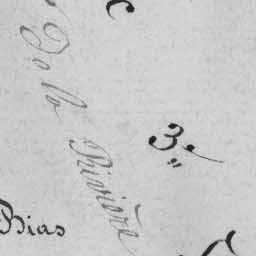 De la Rivière
3e
Bras